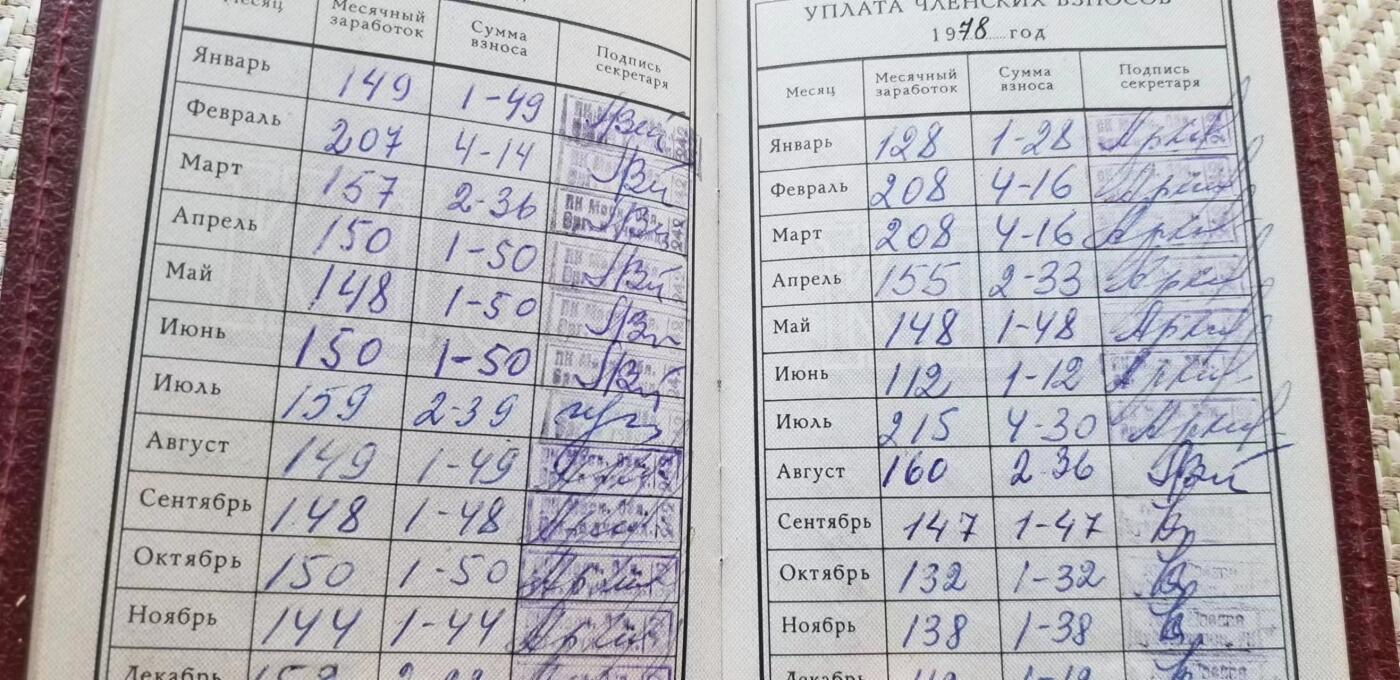 Месяц Месячный заработок Сумма взноса Подпись секретаря
Январь 149 1-49
Февраль 207 4-14
Март 157 2-36
Апрель 150 1-50
Май 148 1-50
Июнь 150 1-50
Июль 159 2-39
Август 149 1-49
Сентябрь 148 1-48
Октябрь 150 1-50
Ноябрь 144 1-44
Декабрь
УПЛАТА ЧЛЕНСКИХ ВЗНОСОВ
1978 год
Месяц Месячный заработок Сумма взноса Подпись секретаря
Январь 128 1-28
Февраль 208 4-16
Март 208 4-16
Апрель 155 2-33
Май 148 1-48
Июнь 112 1-12
Июль 215 4-30
Август 160 2-36
Сентябрь 147 1-47
Октябрь 132 1-32
Ноябрь 138 1-38
Декабрь